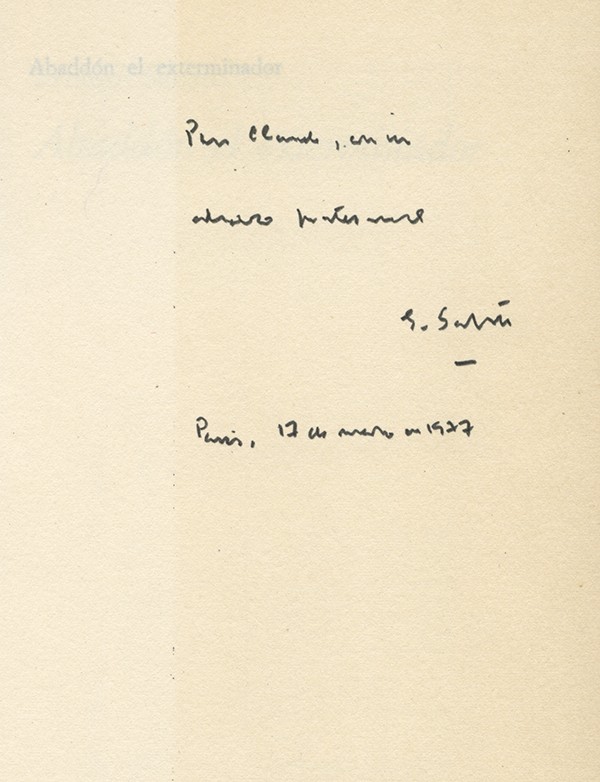 Abaddón el exterminador
Para Claude, con un
abrazo fraternal
E. Sabato
Paris, 17 de marzo de 1977